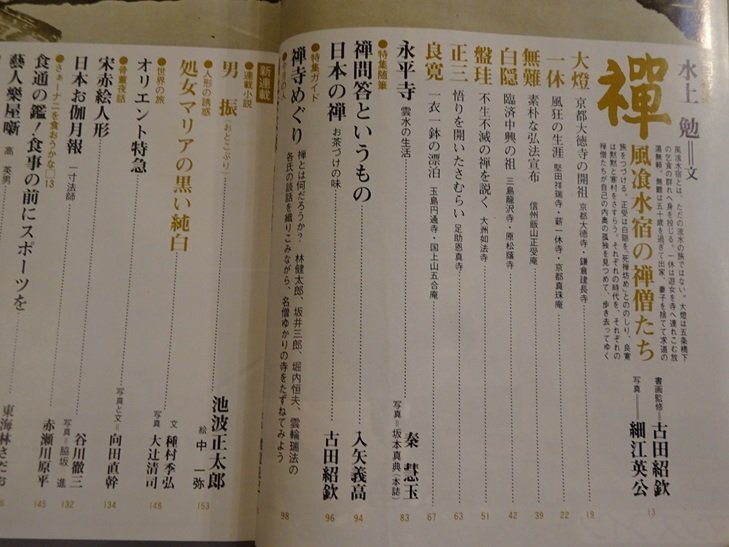 水上 勉=文
風飡水宿とは、ただの流水の旅ではない。大燈は五条橋下
の乞食の群れへ身を投じる。一休は遊女を寺へ連れこむ放
蕩無頼。無難は五十歳を過ぎて出家、妻子を捨てて求道の
旅をつづける。正受は白隠を、死禅坊め"とののしり、良寛
は黙然と寒村をさすらう。それぞれの時代を、それぞれの
禅僧たちが自己の内奥の孤独を見つめて、歩き去ってゆく
禪 風飡水宿の禅僧たち
書画監修=古田紹欽
写真=細江英公
13
大燈 京都大徳寺の開祖 京都大徳寺・鎌倉建長寺 19
一休 風狂の生涯 堅田祥瑞寺・薪一休寺・京都真珠庵 22
無難 素朴な弘法宣布 信州飯山正受庵 39
白隠 臨済中興の祖 三島龍沢寺・原松蔭寺 42
盤珪 不生不滅の禅を説く 大洲如法寺 51
正三 悟りを開いたさむらい 足助恩真寺 63
良寛 一衣一鉢の漂泊 玉島円通寺・国上山五合庵 67
永平寺 雲水の生活 秦 慧玉 写真=坂本真典(本誌) 83
●特集随筆
禅問答というもの 入矢義高 94
日本の禅 お茶づけの味 古田紹欽 96
●特集ガイド
禅寺めぐり 禅とは何だろうか?林健太郎、坂井三郎、堀内恒夫、雲輪瑞法の
各氏の談話を織りこみながら、名僧ゆかりの寺をたずねてみよう 98
新連載
●連載小説
男振 おとこぶり 池波正太郎 絵 中 一弥 153
●人形の誘惑
処女マリアの黒い純白 文 種村季弘 写真 大辻清司 146
●世界の旅
オリエント特急 写真と文=向田直幹 134
●骨董夜話
宋赤絵人形 谷川徹三 写真=脇坂 進 132
日本お伽月報 一寸法師 赤瀬川原平 145
●さぁーナニを食おうかな□13
食通の鑑!食事の前にスポーツを 東海林さだお
藝人樂屋噺 高 英男